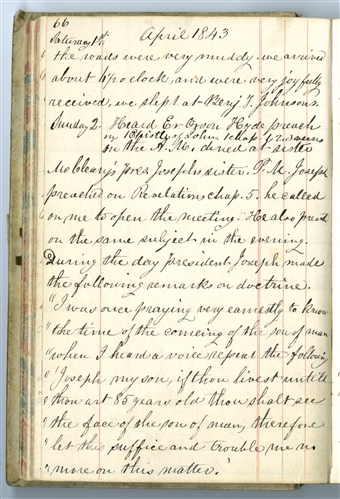 66
April 1843
Saturday 1st
the roads were very muddy. we arrived
about 1/2 o clock, and were very joyfully
received, we slept at Benj F. Johnson's.
Sunday 2. Heard Er Orson Hyde preach
in 1 Epistle of John 1 chap. 1, 2, 3 verses
in the A.M. dined at sister
McCleary's Prest Joseph's sister. P.M. Joseph
preached on Revelations chap. 5. he called
on me to open the meeting. He also preach
on the same subject in the evening.
During the day president Joseph made
the following remarks on doctrine.
"I was once praying very earnestly to know
"the time of the comeing of the son of man
"when I heard a voice repeat the following
"Joseph my son, if thou livest until
"thou art 85 years old thou shalt see
"the face of the son of man, therefore
"let this suffice and trouble me no
"more on this matter."